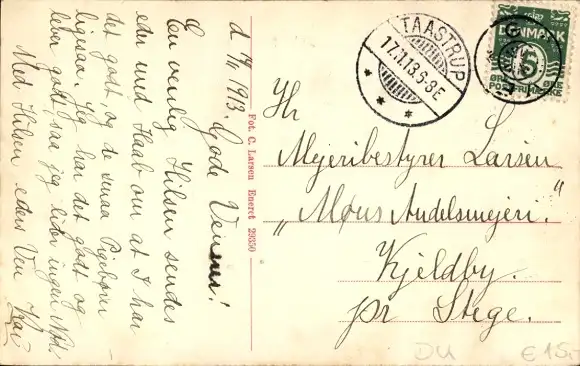 d 17/1 1913. Gode Venner!
En venlig Hilsen sendes
eder med Haab om at I har
det godt og de smaa Pigebørn
ligesaa. Jeg har det godt og
lever godt saa jeg lider ingen Nød.
Med Hilsen eders Ven Kai
Fot. C. Larsen Eneret 29350
TAASTRUP
17.1.13.6-8E
DANMARK
5
ØRE
POSTFRIM.
Hr
Mejeribestyrer Larsen
„Møns Andelsmejeri."
Kjeldby.
pr Stege.
DU
€15,-